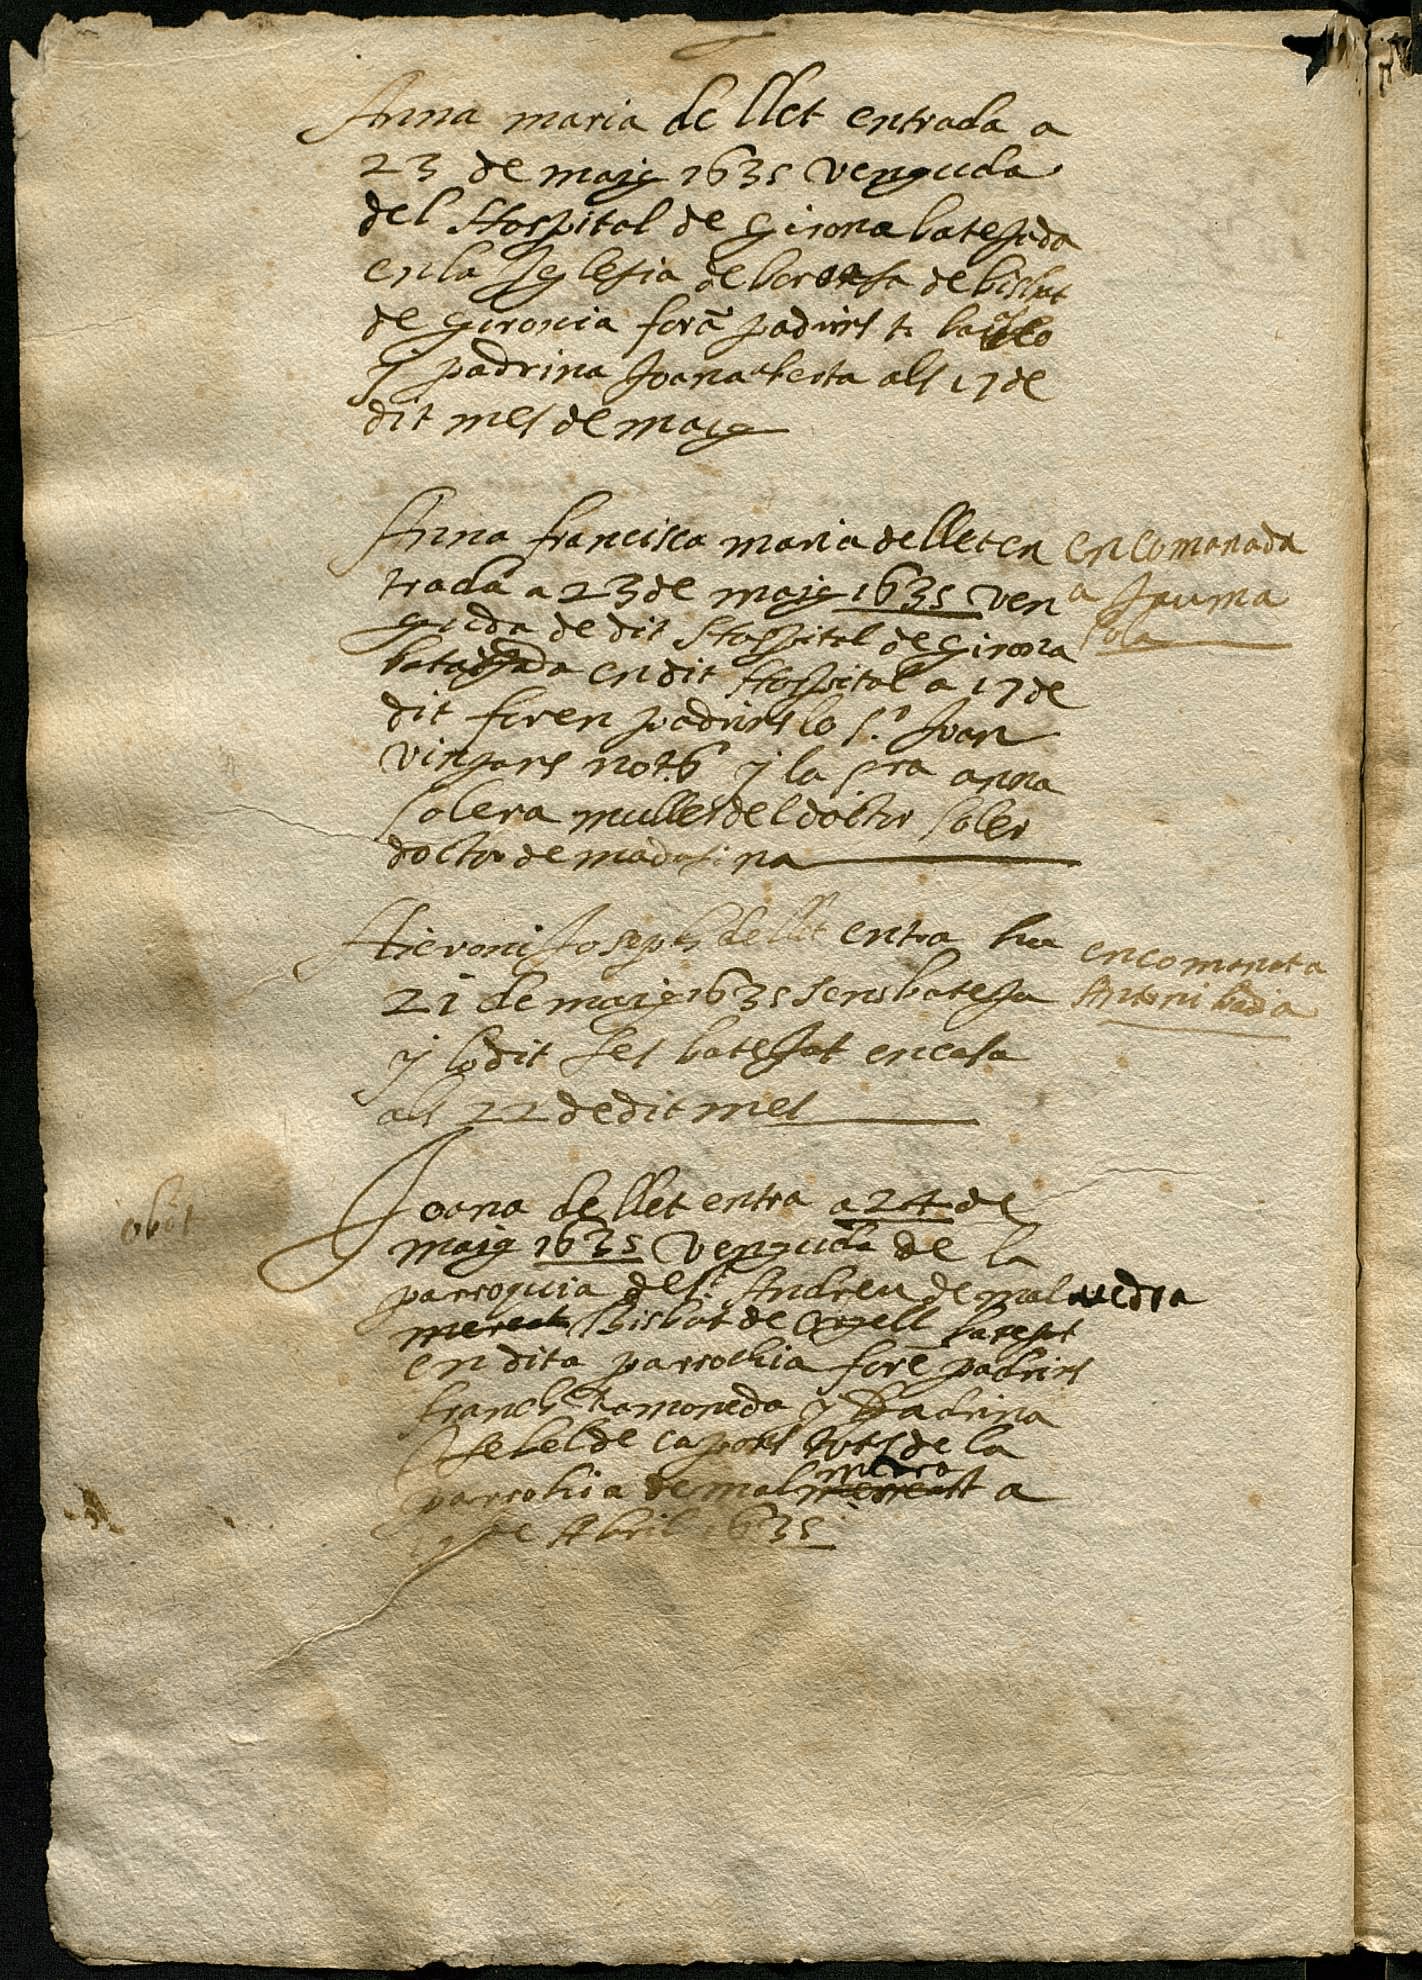 Anna maria de llet entrada a
23 de maig 1635 venguda
del Hospital de Girona batejada
en la Iglesia de de bisbat
de Gironia forã padrins
y padrina Joana als 17 de
dit mes de maig
Anna francisca maria de llet en
trada a 23 de maig 1635 ven
guda de dit Hospital de Girona
batajada en dit Hospital a 17 de
dit foren padrins lo Sr Juan
vinyars y la sra anna
Solera muller del doctor Soler
doctor de madasina
encomanada
a Jauma
Sola
Hieroni Joseph de llet entra
21 de maig 1635 sens bateja
y lo dit Jes batejat en casa
als 22 de dit mes
encomanat a
Antoni badia
obõt
Joana de llet entra a 24 de
maig 1635 venguda de la
parroquia de St. Andreu de mal
bisbat de Urgell batejat
en dita parrochia forẽ padrins
franch Ramoneda y Padrina
de la
parrohia de mal a
de Abril 1635